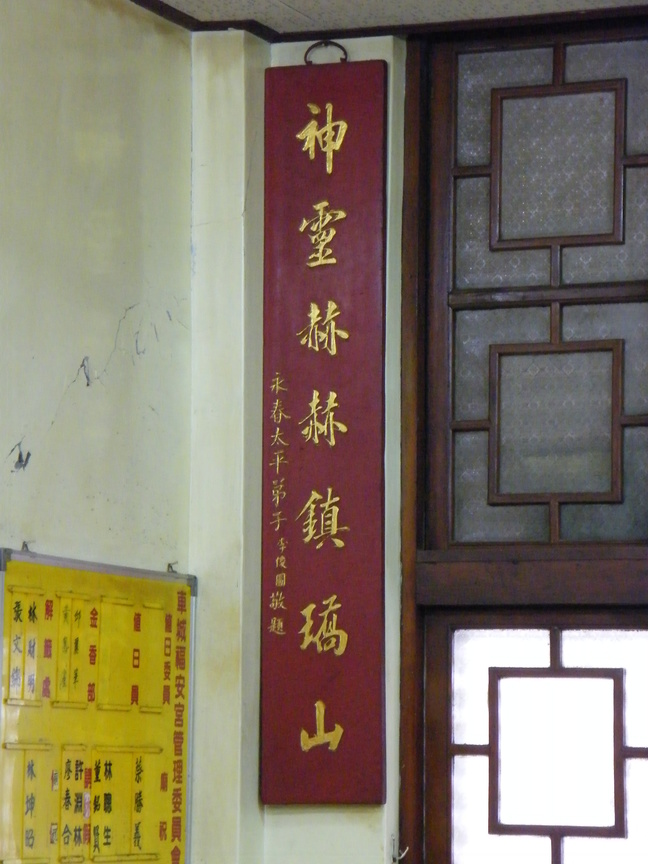 神靈赫赫鎮瑀山
永春太平弟子李俊國敬題
車城福安宮管理委員會
值日委員
值日員
金香部
解籤處
林財明
張文
廟祝
蔡勝義
林聰生
董銘賢
許淵林
廖春合
林坤昭